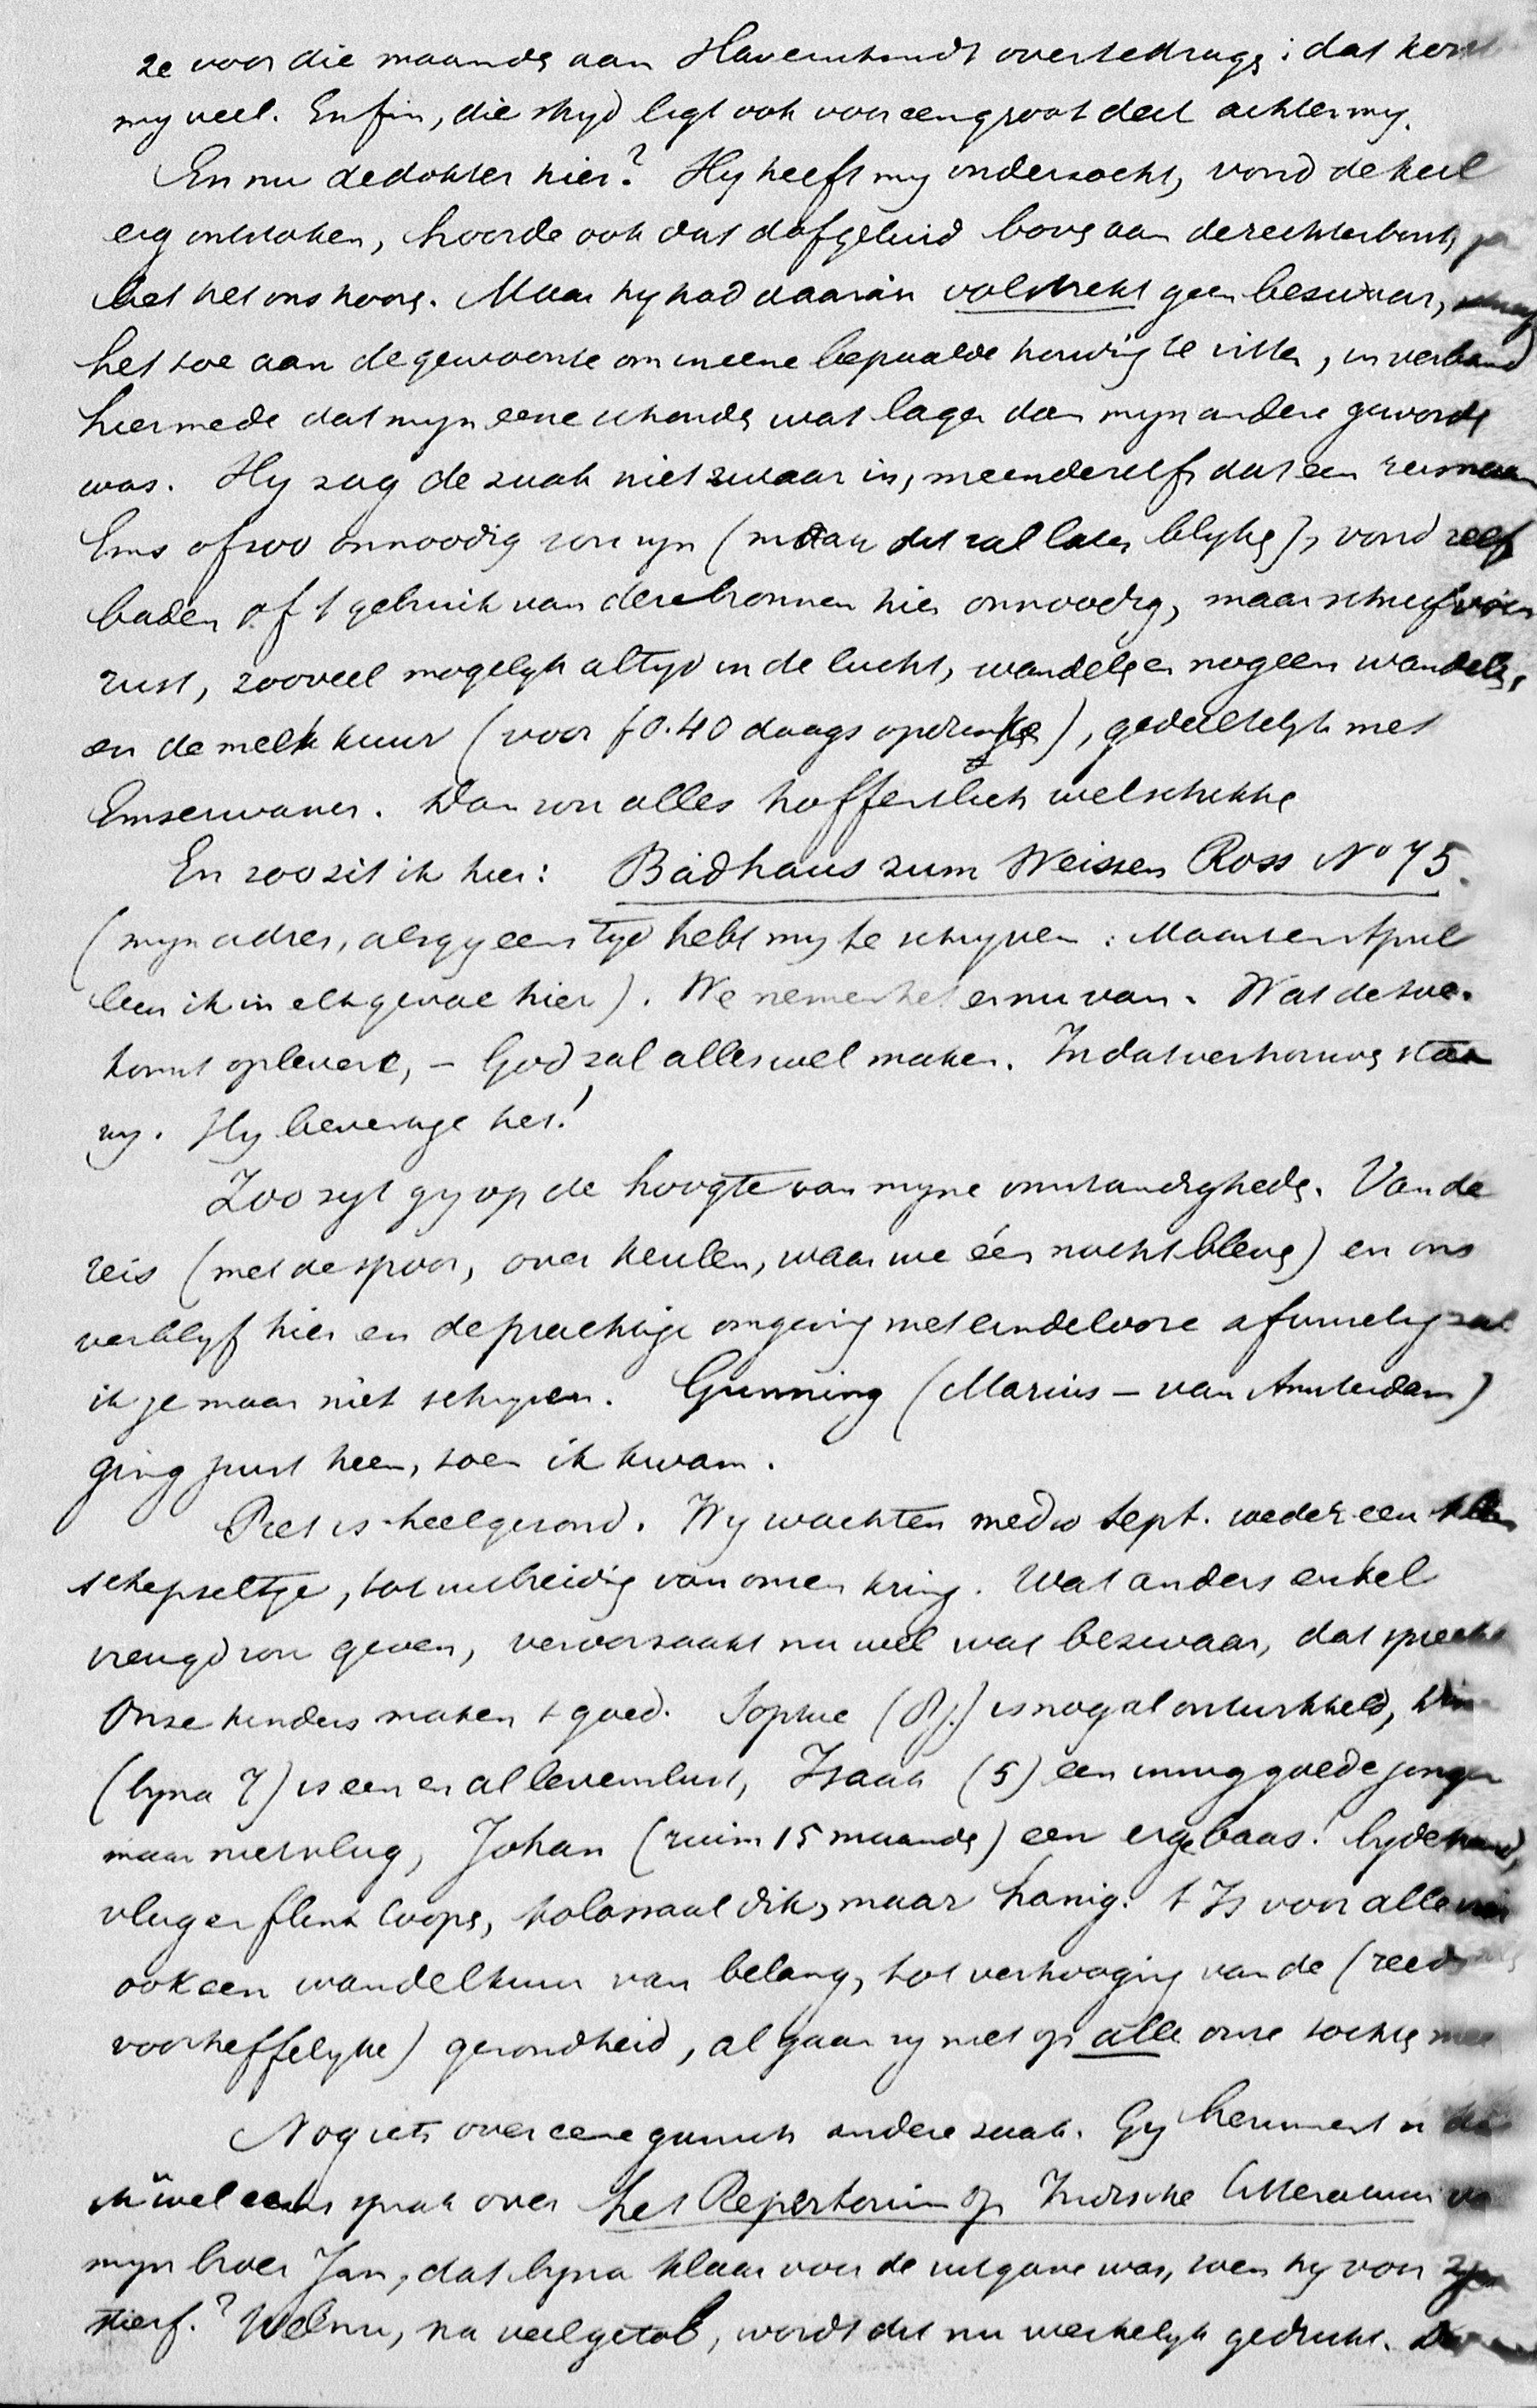 ze voor die maanden aan Haverkamdt overtedragen: dat kost
my veel. Enfin, die stryd ligt ook voor een groot deel achter my.
En nu de dokter hier? Hy heeft my onderzocht, vond de keel
erg ontstoken, hoorde ook dat dofgeluid boven aan de rechterborst, ja
liet het ons hooren. Maar hy had daarin volstrekt geen bezwaar, schreef
het toe aan de gewoonte om in eene bepaalde houding te zitten, in verband
hiermede dat myn eene schouder wat lager dan myn andere geworden
was. Hy zag de zaak niet zwaar in, meende zelfs dat een reis naar
Ems of zoo onnoodig zou zyn (maar dit zal later blyken), vond zelf
baden of 't gebruik van deze bronnen hier onnoodig, maar schreef voor
rust, zooveel mogelyk altyd in de lucht, wandelen en nog eens wandelen,
en de melkkuur (voor f 0.40 daags opdrinken), gedeeltelyk met
Emserwasser. Dan zou alles hoffentlich wel schikken
En zoo zit ik hier: Badhaus zum Weissen Ross No 75.
(myn adres, als gy eens tyd hebt my te schryven: Maart en April
ben ik in elk geval hier). We nemen het er nu van. Wat de toe-
komst oplevere, – God zal alles wel maken. In dat vertrouwen staan
wy. Hy bevestige het!
Zoo zyt gy op de hoogte van myne omstandigheden. Van de
reis (met de spoor, over Keulen, waar we één nacht bleven) en ons
verblyf hier en de prachtige omgeving met eindelooze afwisseling zal
ik je maar niet schryven. Gunning (Marius – van Amsterdam)
ging juist heen, toen ik kwam.
Piet is heel gezond. Wy wachten medio Sept. weder een klein
schepseltje, tot uitbreiding van onzen kring. Wat anders enkel
vreugd zou geven, veroorzaakt nu wel wat bezwaar, dat spreekt
Onze kinders maken 't goed. Sophie (8 j.) is nog al ontwikkeld, Wim
(byna 7) is een en al levenslust, Izaak (5) een innig goede jongen
maar niet vlug, Johan (ruim 15 maanden) een erge baas! bydehand,
vlug en flink loopen, kolossaal dik, maar hanig. 't Is voor allen
ook een wandelkuur van belang, tot verhooging van de (reeds
voortreffelyke) gezondheid, al gaan zy niet op alle onze tochten mee
Nog iets over eene gansch andere zaak. Gy herinnert u dat
ik u wel eens sprak over het Repertorium op Indische Litteratuur van
myn broer Jan, dat byna klaar voor de uitgave was, toen hy
stierf? Welnu, na veel getob, wordt dit nu werkelyk gedrukt.